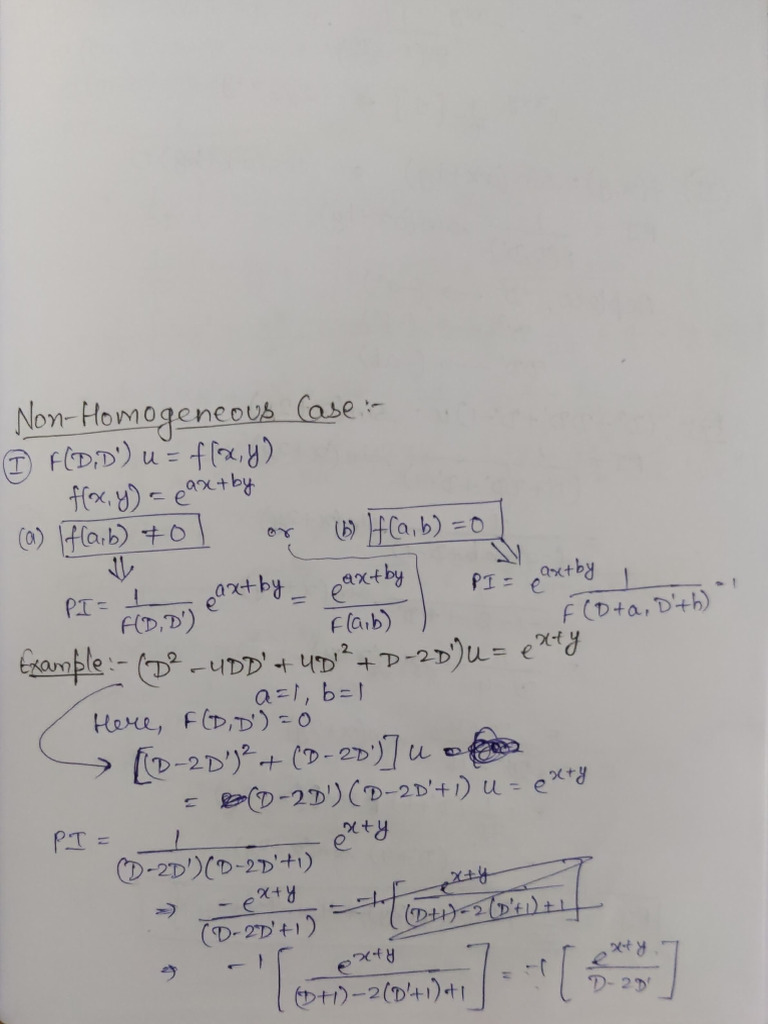 Non-Homogeneous Case :-
(I) F(D,D') u = f(x,y)
f(x,y) = e^{ax+by}
(a) f(a,b) ≠ 0 or (b) f(a,b) = 0
⇓ ⇘
PI = 1/F(D,D') e^{ax+by} = e^{ax+by}/F(a,b) PI = e^{ax+by} 1/F(D+a, D'+b) · 1
Example :- (D² - 4DD' + 4D'² + D - 2D')u = e^{x+y}
a=1, b=1
Here, F(D,D') = 0
→ [(D-2D')² + (D-2D')] u
= (D-2D') (D-2D'+1) u = e^{x+y}
PI = 1/((D-2D')(D-2D'+1)) e^{x+y}
⇒ -e^{x+y}/(D-2D'+1) = -1 [e^{x+y}/((D+1)-2(D'+1)+1)]
⇒ -1 [e^{x+y}/((D+1)-2(D'+1)+1)] = -1 [e^{x+y}/(D-2D')]